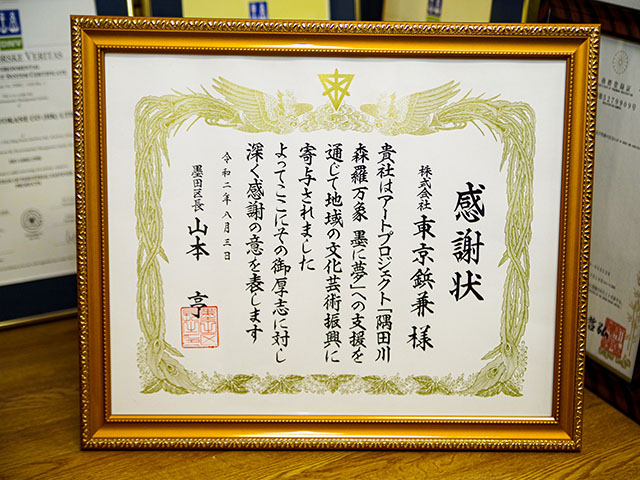 感謝状
株式会社 東京鋲兼 様
貴社はアートプロジェクト「隅田川
森羅万象 墨に夢」への支援を
通じて地域の文化芸術振興に
寄与されました
よってここにその御厚志に対し
深く感謝の意を表します
令和二年八月三日
墨田区長 山本 亨